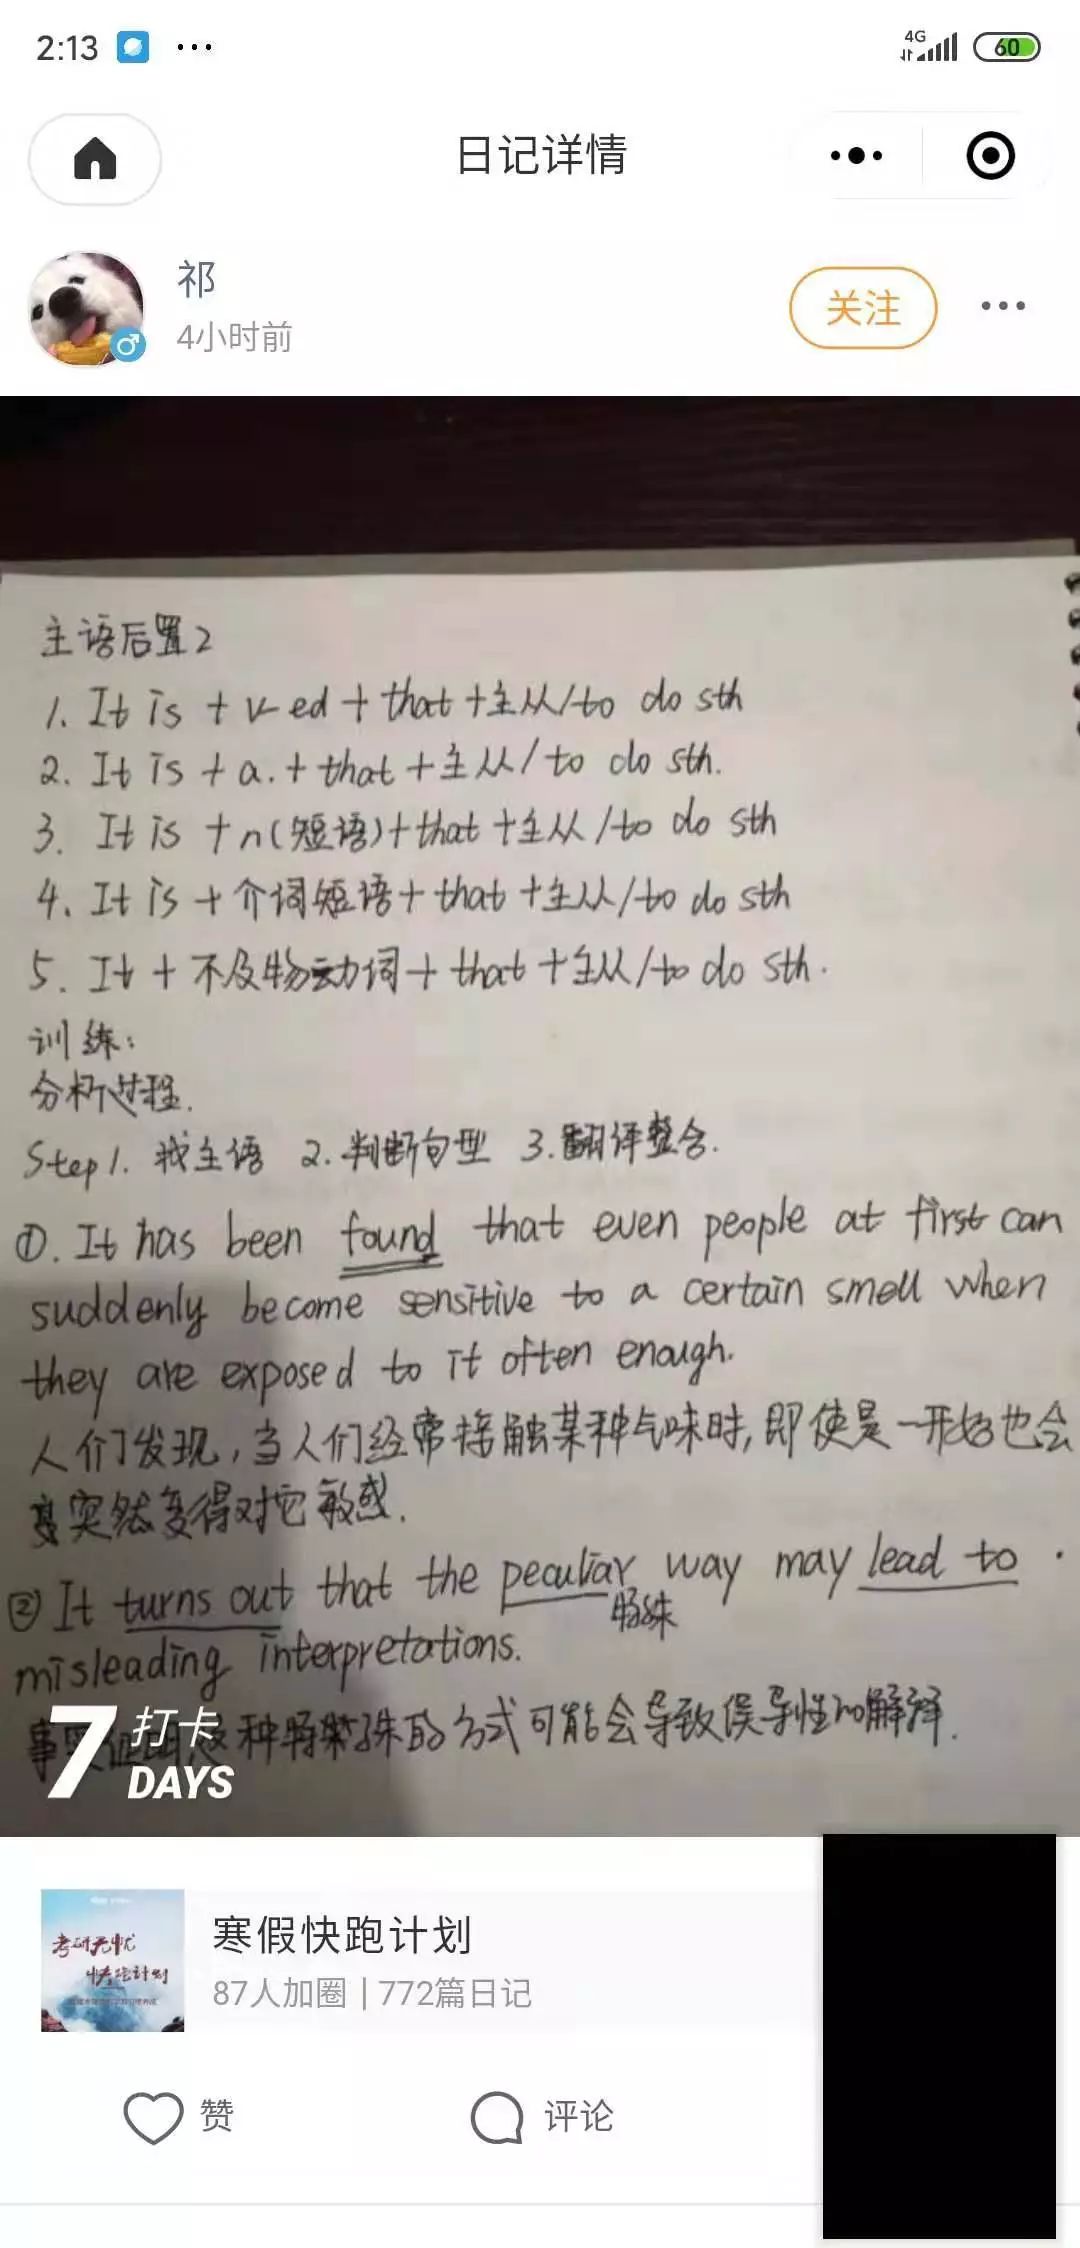 2:13
4G
60
日记详情
祁
4小时前
关注
主语后置2
1. It is + v-ed + that + 主从/to do sth
2. It is + a. + that + 主从/to do sth.
3. It is + n(短语) + that + 主从/to do sth
4. It is + 介词短语 + that + 主从/to do sth
5. It + 不及物动词 + that + 主从/to do sth.
训练:
分析过程.
Step 1. 找主语 2. 判断句型 3. 翻译整合.
①. It has been found that even people at first can
suddenly become sensitive to a certain smell when
they are exposed to it often enough.
人们发现, 当人们经常接触某种气味时, 即使是一开始也会
突然变得对它敏感.
② It turns out that the peculiar way may lead to
特殊
misleading interpretations.
种特殊的方式可能会导致误导性的解释.
7 打卡
DAYS
考研无忧
快跑计划
寒假快跑计划
87人加圈 | 772篇日记
赞
评论